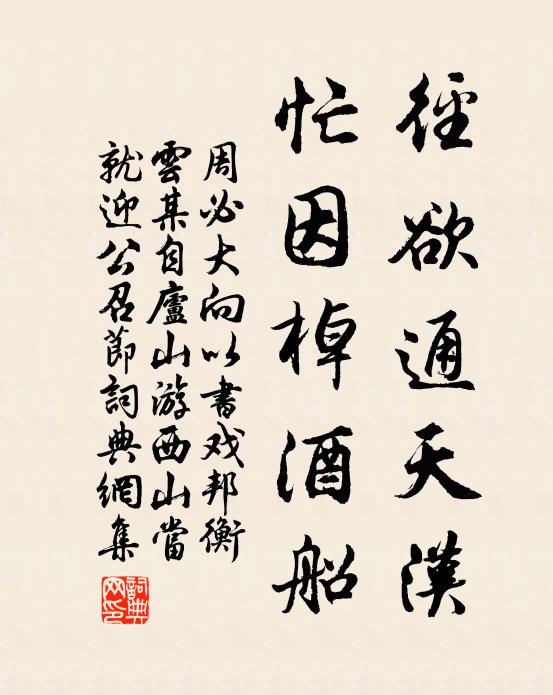 徑欲通天漢
忙因棹酒船
周必大向以書戏邦衡
雲某自廬山游西山當
就迎公召節詞典網集
詞典网印